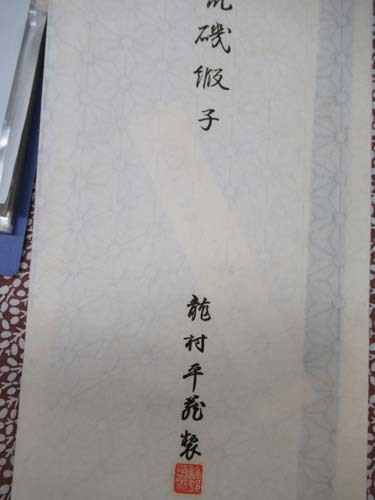 磯緞子
龍村平藏製